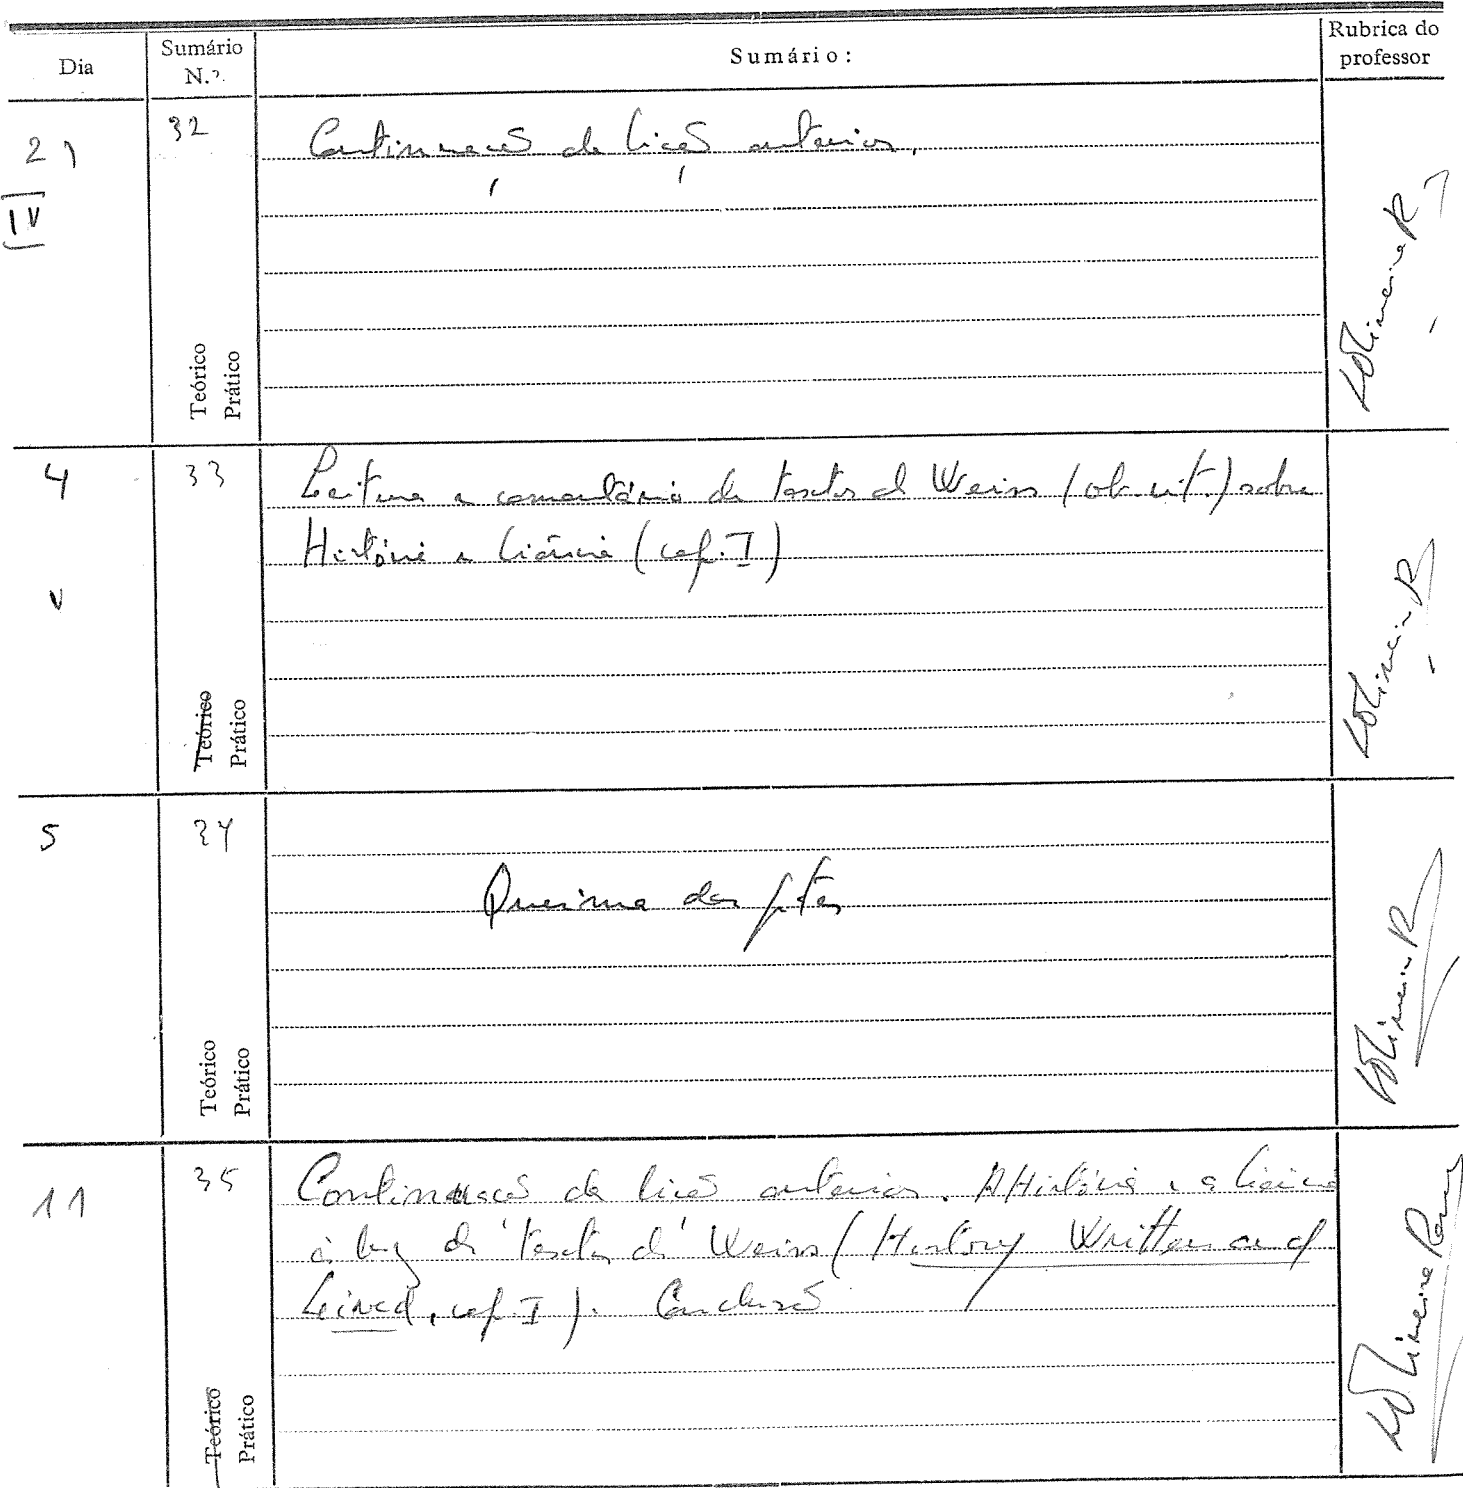 Dia
Sumário N.º
Sumário:
Rubrica do professor
21
IV
32
Continuação da lição anterior.
Teórico
Prático
4
V
33
Leitura e comentário de textos de Weiss (ob. cit.) sobre
História e Ciência (cap. I)
Teórico
Prático
5
34
Queima das fitas
Teórico
Prático
11
35
Continuação da lição anterior. A História e a Ciência
à luz de textos de Weiss (History Written and
Lived, cap. I). Conclusão
Teórico
Prático